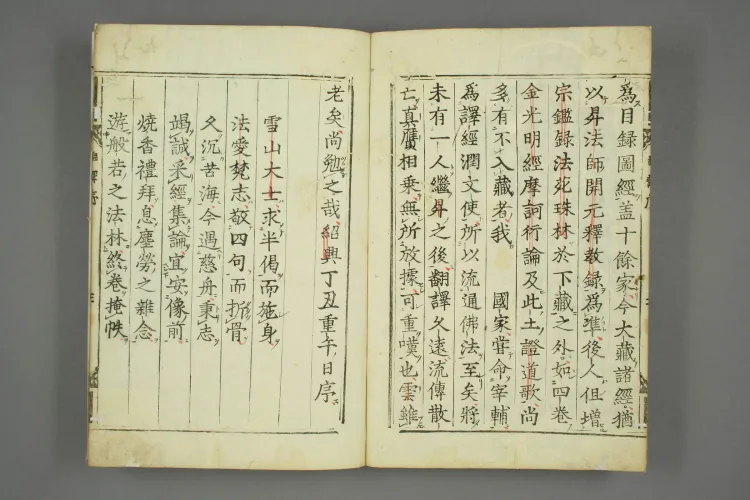 為目録圖經盖十餘家今大藏諸經猶
以昇法師開元釋教録為準後人但増
宗鑑録法苑珠林於下藏之外如四卷
金光明經摩訶衍論及此土證道歌尚
多有不入藏者我　國家甞命宰輔
為譯經潤文使所以流通佛法至矣將
未有一人繼昇之後翻譯久遠流傳散
亡真贋相乗無所放據可重嘆也雲雖
老矣尚勉之哉紹興丁丑重午日序
雪山大士求半偈而施身
法愛梵志敬四句而折骨
久沉苦海今遇慈舟秉志
竭誠采經集論宜安像前
燒香禮拜息塵勞之雜念
遊般若之法林終卷掩帙